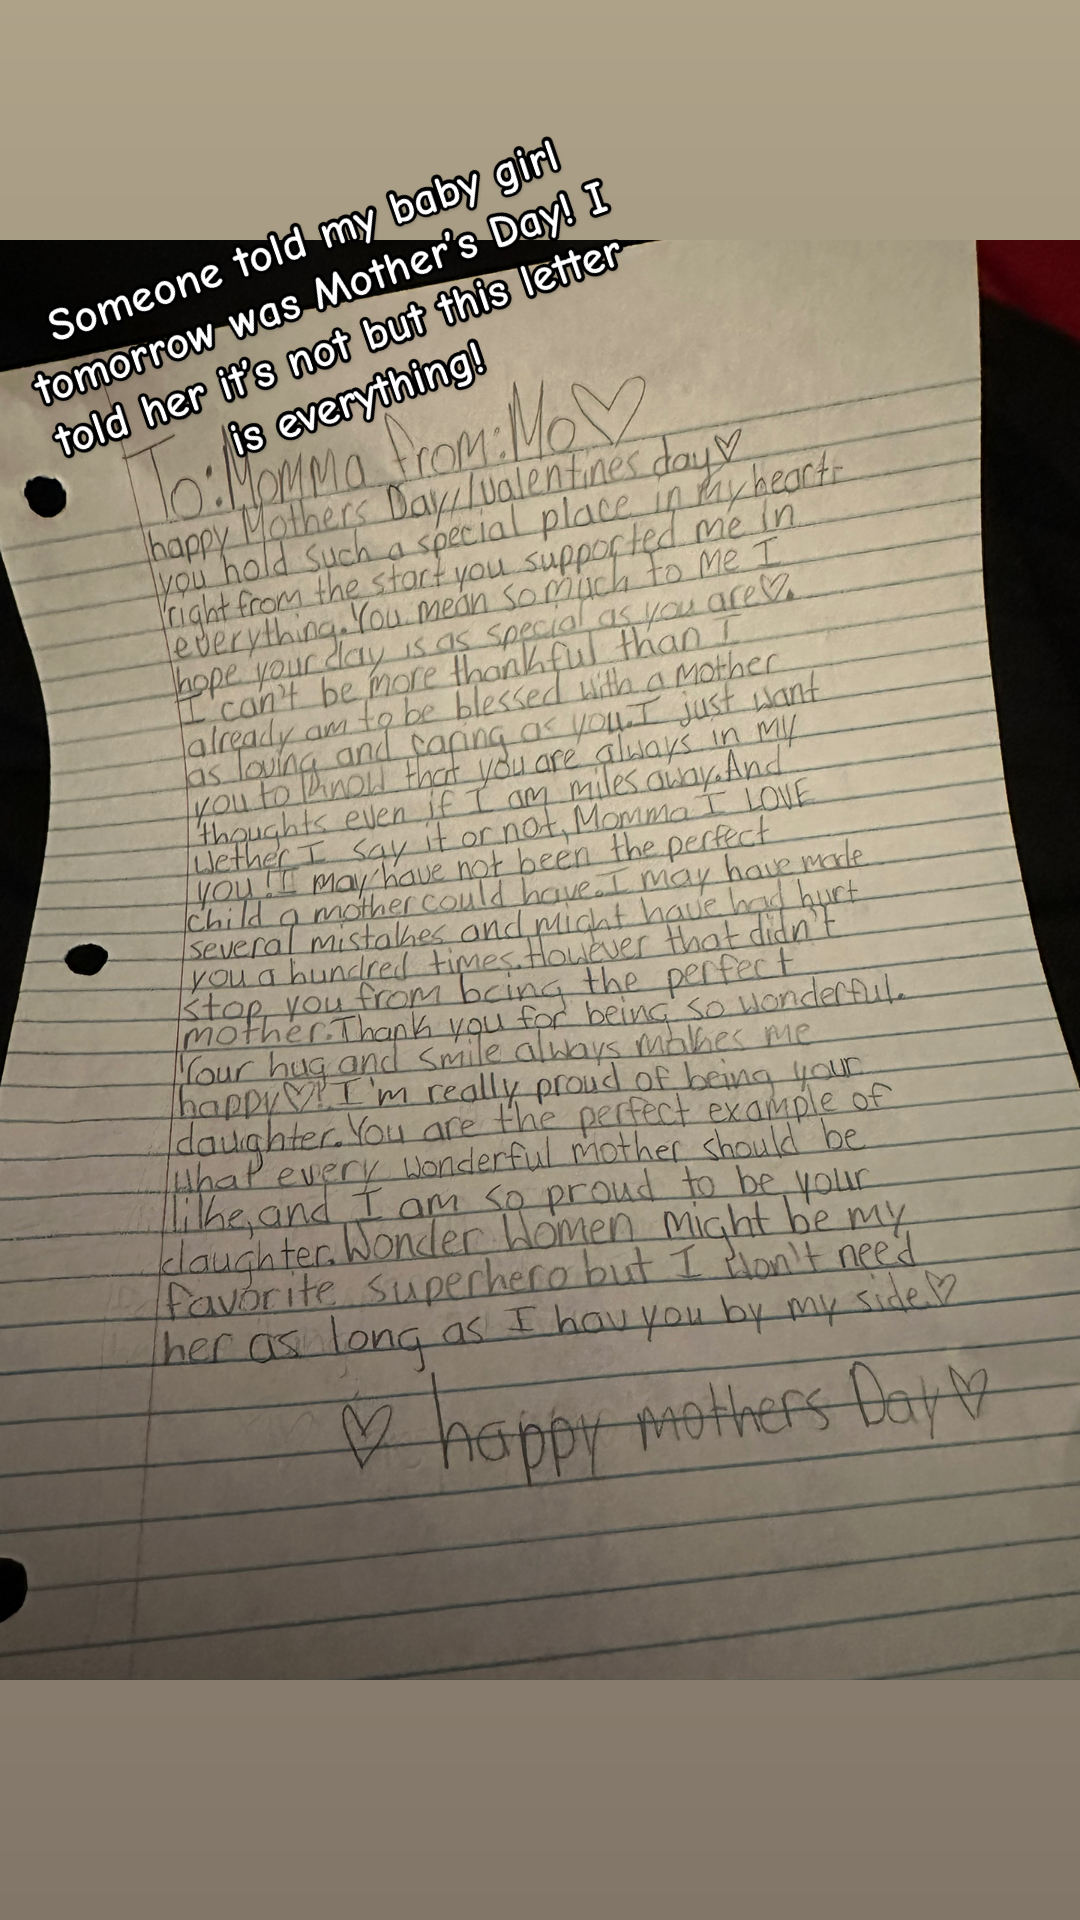 Someone told my baby girl
tomorrow was Mother's Day! I
told her it's not but this letter
is everything!
To: Momma from: Mo♡
happy Mothers Day//valentines day♡
you hold such a special place in my heart-
right from the start you supported me in
everything. You mean so much to me I
hope your day is as special as you are♡.
I can't be more thankful than I
already am to be blessed with a mother
as loving and caring as you. I just want
you to know that you are always in my
thoughts even if I am miles away. And
Wether I say it or not, Momma I LOVE
you! I may have not been the perfect
child a mother could have. I may have made
several mistakes and might have had hurt
you a hundred times. However that didn't
stop you from being the perfect
mother. Thank you for being so wonderful.
Your hug and smile always makes me
happy♡! I'm really proud of being your
daughter. You are the perfect example of
what every wonderful mother should be
like, and I am so proud to be your
daughter. Wonder Women might be my
favorite superhero but I don't need
her as long as I hav you by my side.♡
♡ happy mothers Day♡